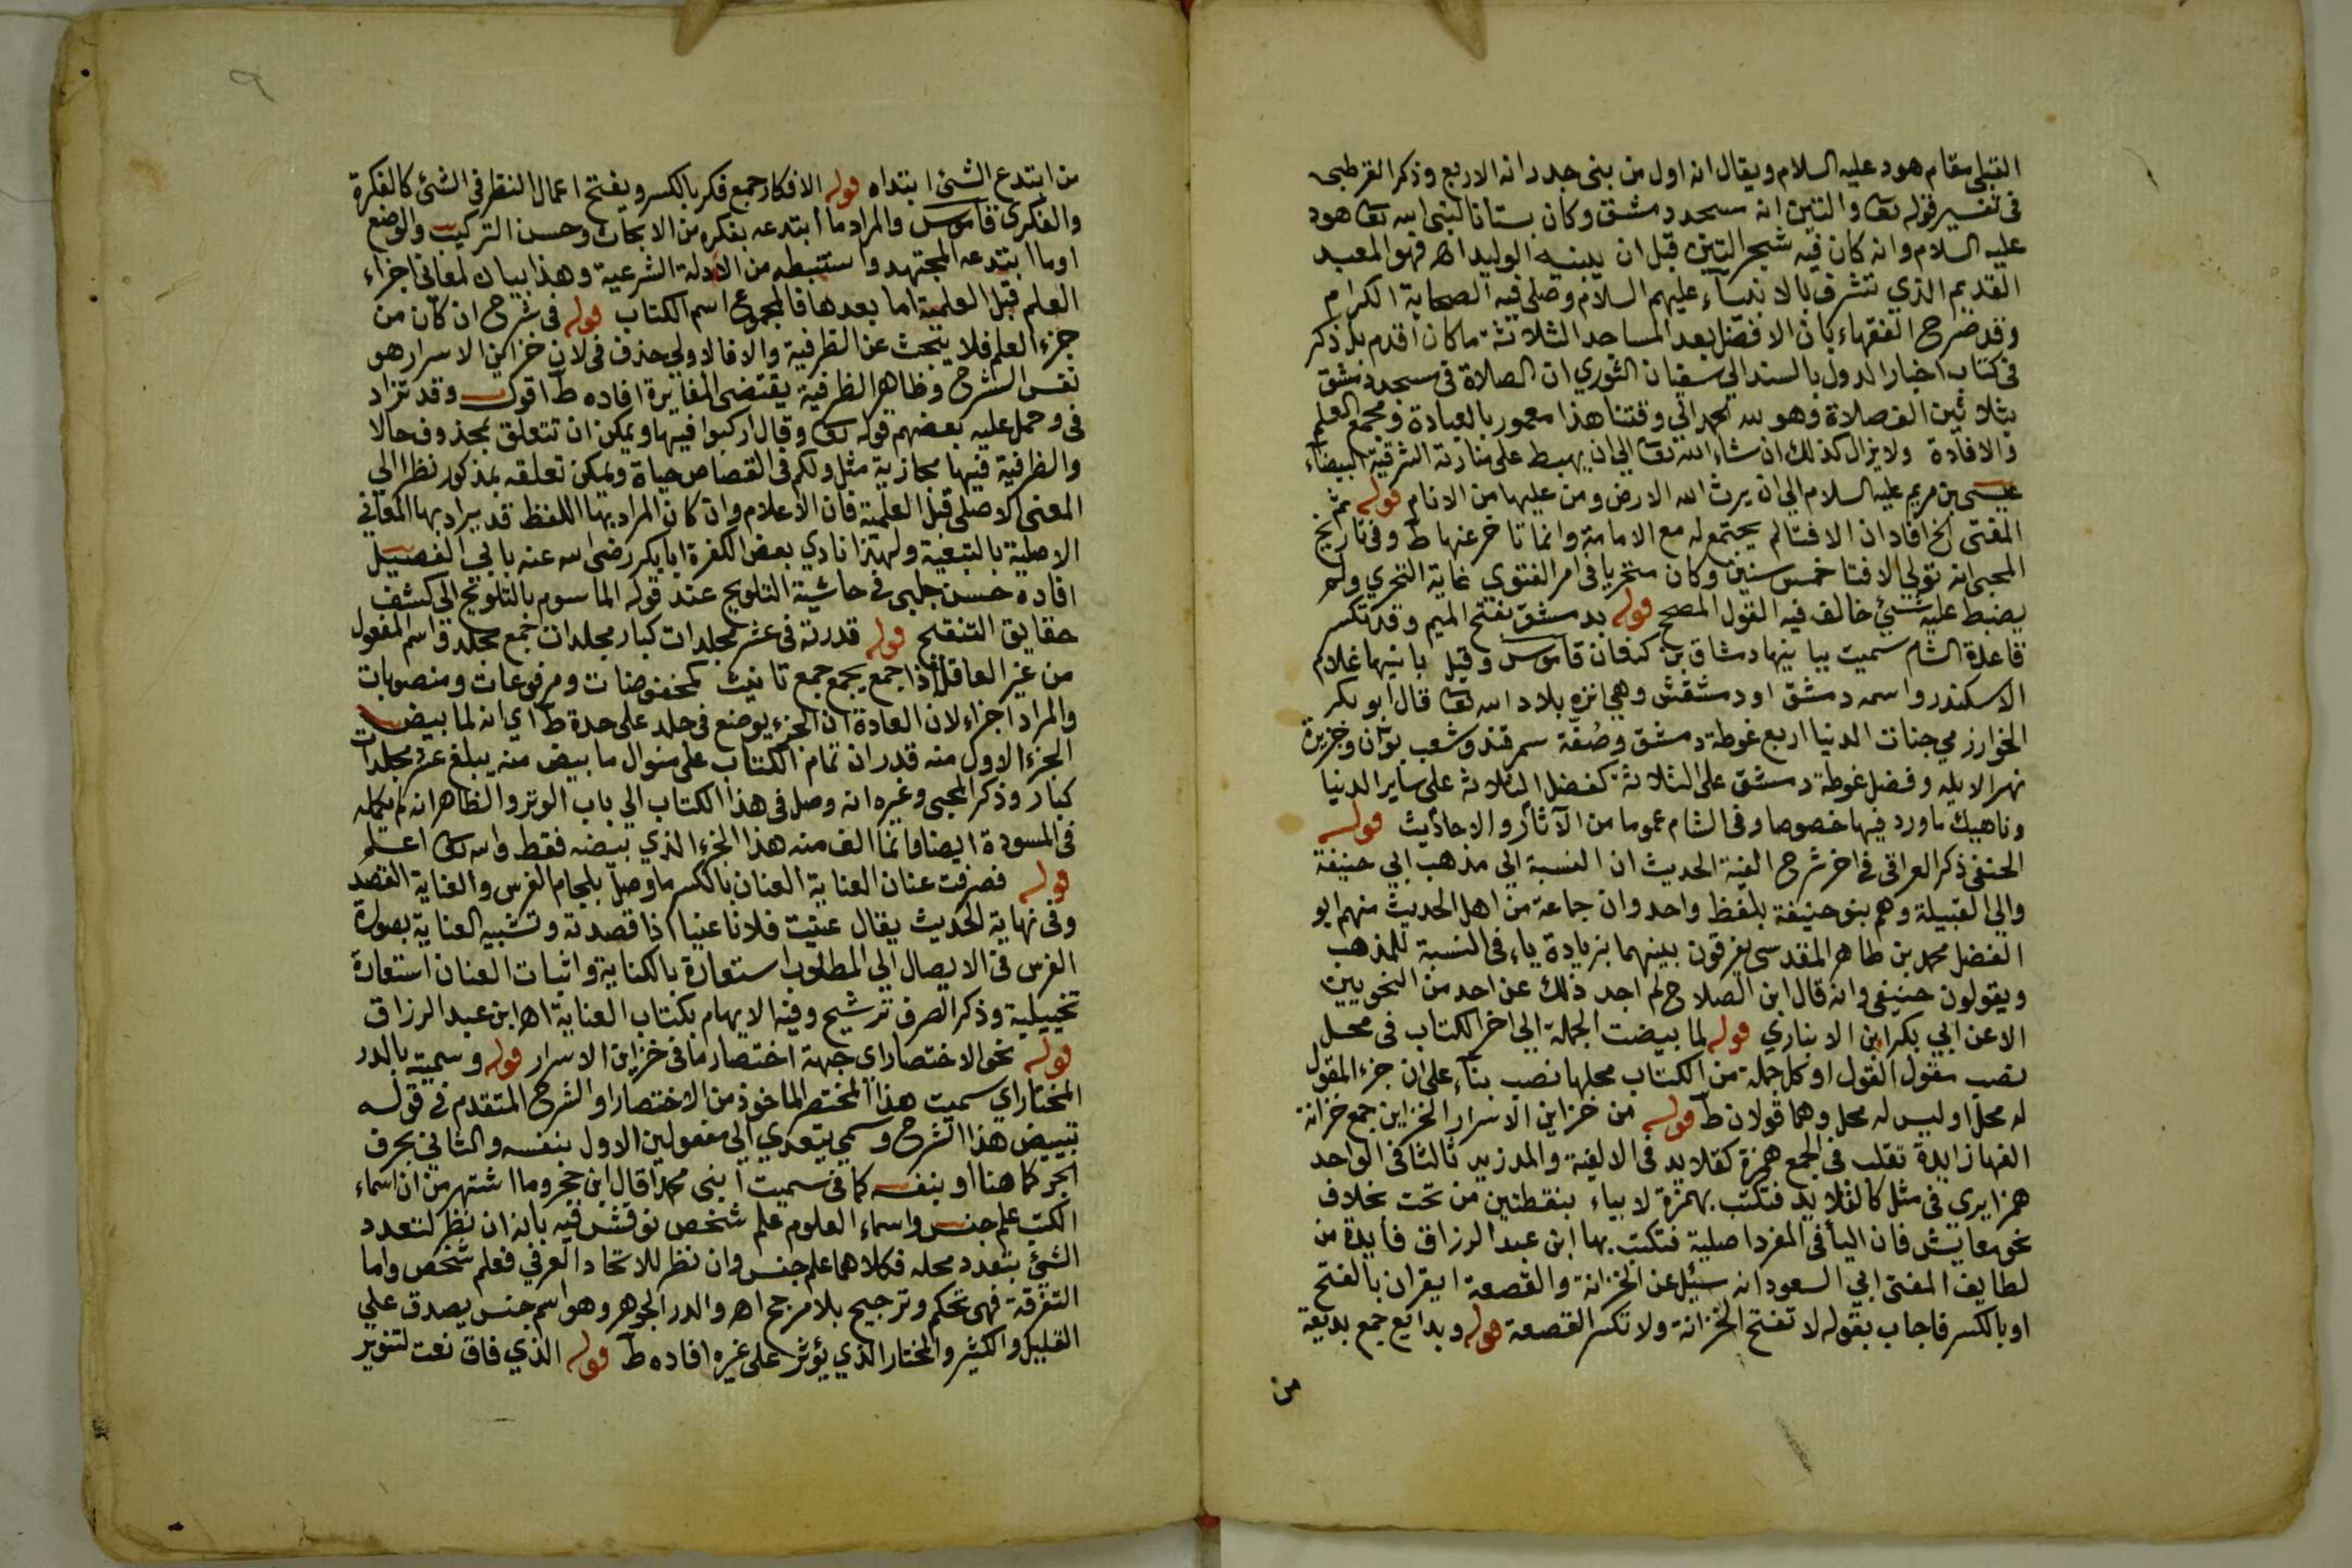 القبلي مقام هود عليه السلام ويقال انه اول من بنى جدرانه الاربع وذكر القرطبي
في تفسير قوله تعا والتين انه مسجد دمشق وكان بستانا لنبي الله تعا هود
عليه السلام وانه كان فيه شجر التين قبل ان يبنيه الوليد اه فهو المعبد
القديم الذي تشرف بالانبياء عليهم السلام وصلى فيه الصحابة الكرام
وقد صرح الفقهاء بان الافضل بعد المساجد الثلاثة ما كان اقدم بل ذكر
في كتاب اخبار الدول بالسند الي سفيان الثوري ان الصلاة في مسجد دمشق
بثلاثين الف صلاة وهو لله الحمد الي وقتنا هذا معمور بالعبادة ومجمع العلم
والافادة ولا يزال كذلك ان شاء الله تعا الي ان يهبط على منارته الشرقية البيضاء
عيسى بن مريم عليه السلام الي ان يرث الله الارض ومن عليها من الانام قوله ثم
المفتى الخ افاد ان الافتا لم يجتمع له مع الامامة وانما تاخر عنها ط وفي تاريخ
المحبي انه تولي الافتا خمس سنين وكان متحريا في امر الفتوي غاية التحري ولم
يضبط عليه شيئ خالف فيه القول المصحح قوله بدمشق بفتح الميم وقد تكسر
قاعدة الشام سميت ببانيها دمشاق بن كنعان قاموس وقيل بانيها غلام
الاسكندر واسمه دمشق او دمشقش وهي انزه بلاد الله تعا قال ابو بكر
الخوارزمي جنات الدنيا اربع غوطة دمشق وصغد سمرقند وشعب بوان وجزيرة
نهر الابله وفضل غوطة دمشق على الثلاثة كفضل الثلاثة على ساير الدنيا
وناهيك ما ورد فيها خصوصا وفي الشام عموما من الآثار والاحاديث قوله
الحنفي ذكر العراقي في اخر شرح الفية الحديث ان النسبة الي مذهب ابي حنيفة
والي القبيلة وهم بنو حنيفة بلفظ واحد وان جماعة من اهل الحديث منهم ابو
الفضل محمد بن طاهر المقدسي يفرقون بينهما بزيادة ياء في النسبة للمذهب
ويقولون حنيفي وانه قال ابن الصلاح لم اجد ذلك عن احد من النحويين
الا عن ابي بكر ابن الانباري قوله لما بيضت الجملة الي اخر الكتاب في محل
نصب مقول القول او كل جملة من الكتاب محلها نصب بناء على ان جزء المقول
له محل او ليس له محل وهما قولان ط قوله من خزاين الاسرار الخزاين جمع خزانة
الفها زايدة تقلب في الجمع همزة كقلايد في الالفية والمد زيد ثالثا في الواحد
همزا يرى في مثل كالقلايد فتكتب بهمزة لا بياء بنقطتين من تحت بخلاف
نحو معايش فان اليأ في المفرد اصلية فتكتب بها ابن عبد الرزاق فايدة من
لطايف المفتى ابي السعود انه سئيل عن الخزانة والقصعة ايقران بالفتح
او بالكسر فاجاب بقوله لا تفتح الخزانة ولا تكسر القصعة قوله وبدايع جمع بديعة
من
٩
من ابتدع الشئ ابتداه قوله الافكار جمع فكر بالكسر ويفتح اعمال النظر في الشئ كالفكرة
والفكرى قاموس والمراد ما ابتدعه بفكره من الابحاث وحسن التركيب والوضع
او ما ابتدعه المجتهد واستنبطه من الادلة الشرعية وهذا بيان لمعاني اجزاء
العلم قبل العلمية اما بعدها فالمجموع اسم الكتاب قوله في شرح ان كان من
جزء العلم فلا يبحث عن الظرفية والا فالاولي حذف في لان خزاين الاسرار هو
نفس الشرح وظاهر الظرفية يقتضى المغايرة افاده ط اقول وقد تزاد
في وحمل عليه بعضهم قوله تعا وقال اركبوا فيها ويمكن ان تتعلق بمحذوف حالا
والظرفية فيها مجازية مثل ولكم في القصاص حياة ويمكن تعلقه بمذكور نظرا الي
المعنى الاصلي قبل العلمية فان الاعلام وان كان المراد بها اللفظ قد يراد بها المعاني
الاصلية بالتبعية ولهذا نادي بعض الكفرة ابا بكر رضى الله عنه بابي الفصيل
افاده حسن جلبي في حاشية التلويح عند قوله الموسوم بالتلويح الى كشف
حقايق التنقيح قوله قدرته في عشر مجلدات كبار مجلدات جمع مجلد واسم المفعول
من غير العاقل اذا جمع يجمع جمع تانيث كمخفوضات ومرفوعات ومنصوبات
والمراد اجزاء لان العادة ان الجزء يوضع في جلد على حدة ط اي انه لما بيض
الجزء الاول منه قدر ان تمام الكتاب على منوال ما بيض منه يبلغ عشر مجلدات
كبار وذكر المحبي وغيره انه وصل في هذا الكتاب الي باب الوتر والظاهر انه لم يكمله
في المسودة ايضا وانما الف منه هذا الجزء الذي بيضه فقط والله تعا اعلم
قوله فصرفت عنان العناية العنان بالكسر ما وصل بلجام الفرس والعناية القصد
وفي نهاية الحديث يقال عنيت فلانا عنيا اذا قصدته وتشبيه العناية بصورة
الفرس في الايصال الي المطلوب استعارة بالكناية واثبات العنان استعارة
تخييلية وذكر الصرف ترشيح وفيه الايهام بكتاب العناية اه ابن عبد الرزاق
قوله نحو الاختصار اي جهة اختصار ما في خزاين الاسرار قوله وسميته بالدر
المختار اي سميت هذا المختصر الماخوذ من الاختصار او الشرح المتقدم في قوله
تبييض هذا الشرح وسمي يتعدي الي مفعولين الاول بنفسه والثاني بحرف
الجر كما هنا او بنفسه كما في سميت ابني محمدا قال ابن حجر وما اشتهر من ان اسماء
الكتب علم جنس واسماء العلوم علم شخص نوقش فيه بانه ان نظر لتعدد
الشئ بتعدد محله فكلاهما علم جنس وان نظر للاتحاد العرفي فعلم شخص واما
التفرقة فهي تحكم وترجيح بلا مرجح اه والدر الجوهر وهو اسم جنس يصدق علي
القليل والكثير والمختار الذي يؤثر على غيره افاده ط قوله الذي فاق نعت لتنوير